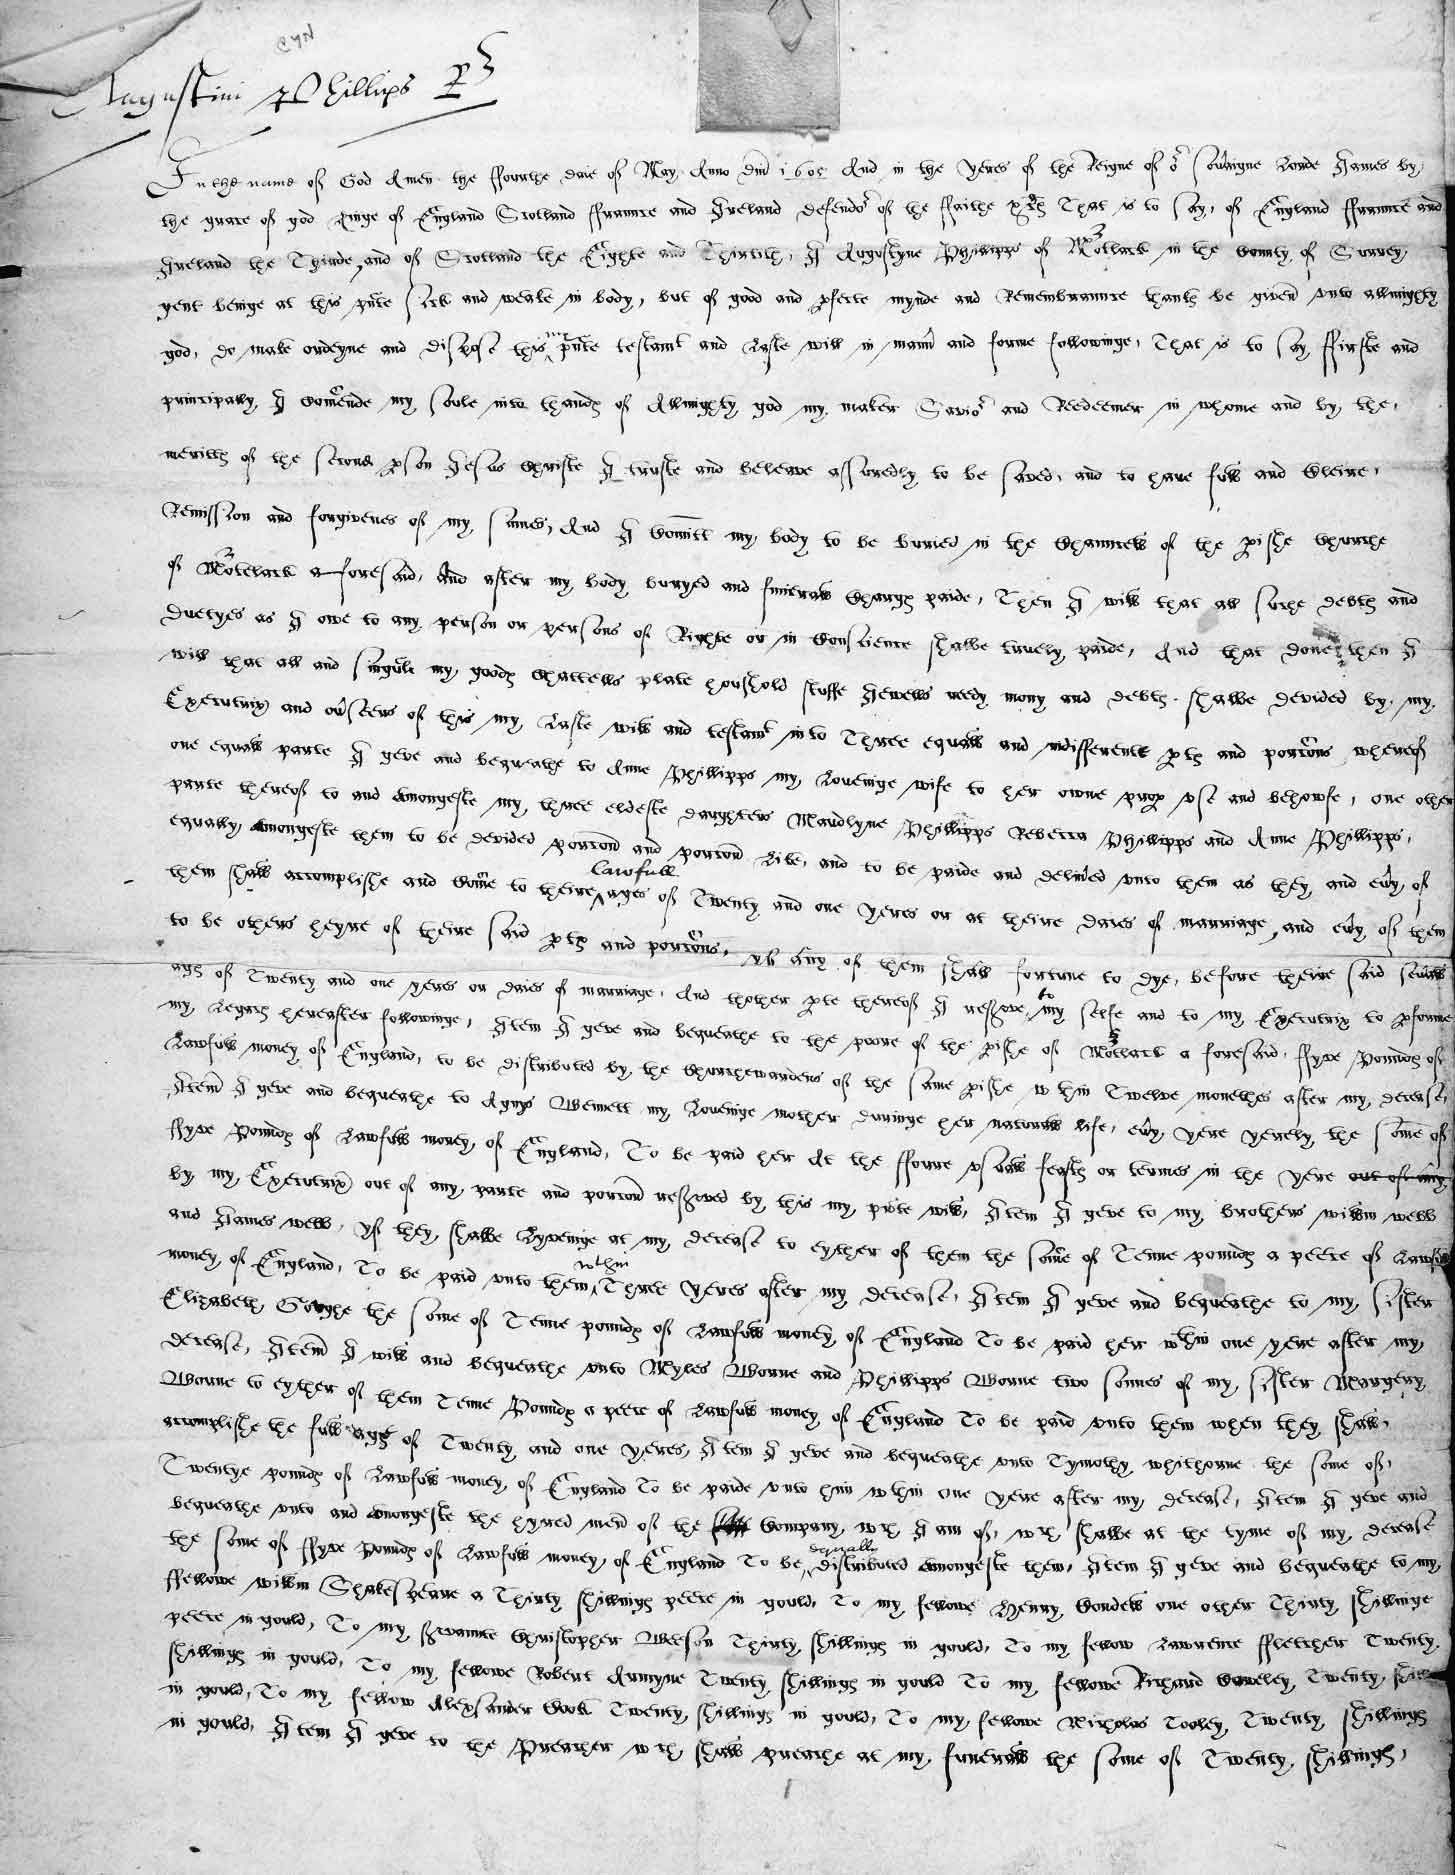 CYN
Augustini Phillips
In the name of God Amen the ffourthe daie of May Anno dm̃ 1605 And in the Yeres of the Reigne of oʳ sov̾aigne Lorde James by
the grace of god kinge of England Scotland ffraunce and Ireland defendoʳ of the ffaithe &c That is to say, of England ffraunce and
Ireland the Thirde, and of Scotland the Eighte and Thirtith, I Augustyne Phillipps of Mortlack in the County of Surrey
gent beinge at this pñte sick and weake in body, but of good and pfecte mynde and Remembraunce thanks be given vnto allmighty
god, do make ordeyne and dispose this my pñte testamᵗ and Laste will in mann̾ and forme followinge, That is to say, ffirste and
principally I Com̃ende my soule into thands of Allmighty god my maker Savioʳ and Redeemer in whome and by the
meritts of the second pson Jesus Christe I truste and beleave assuredly to be saved, and to have full and Cleire,
Remission and forgivenes of my sinnes, And I Com̃itt my body to be buried in the Chauncell of the pishe Churche
of Mortelack aforesaid, And after my body buryed and funerall Chargs paide, Then I will that all suche debts and
duetyes as I owe to any person or persons of Righte or in Conscience shalbe truely paide, And that done then I
will that all and singuler my goods Chattells plate houshold stuffe Jewells redy mony and debts shalbe devided by my
Executrix and ov̾seers of this my Laste will and testamᵗ into Three equall and indifferente pts and porc̃ons whereof
one equall parte I geve and bequeathe to Anne Phillipps my Loveinge wife to her owne prop vse and behowfe, One other
parte thereof to and Amongeste my three eldeste daughters Maudlyne Phillipps Rebecca Phillipps and Anne Phillipps,
equally Amongeste them to be devided porc̃on and porc̃on Like, and to be paide and deliv̾ed vnto them as they and ev̾y of
them shall accomplishe and Com̃e to theire Lawfull ages of Twenty and one Yeres or at theire daies of marriage, and ev̾y of them
to be others heyre of theire said pts and porc̃ons, yf any of them shall fortune to dye, before theire said sev̾all
ags of Twenty and one yeres or daies of marriage, And thother pte thereof I reserve to my selfe and to my Executrix to pforme
my Legacs hereafter followinge, Item I geve and bequeathe to the poore of the pishe of Mortlack aforesaid, ffyve Pounds of
Lawfull money of England, to be distributed by the Churchewardens of the same pishe wthin Twelve monethes after my decease,
Item I geve and bequeathe to Agnys Bennett my Loveinge mother duringe her naturall life, ev̾y yere yerely the som̃e of
ffyve Pounds of Lawfull money of England, To be paid her At the ffoure vsuall feasts or termes in the yere out of any
by my Executrix out of any parte and porc̃on reserved by this my pñte will, Item I geve to my brothers willm webb
and James webb, yf they shalbe Lyveinge at my decease to eyther of them the som̃e of Tenne pounds a peece of Lawfull
money of England, To be paid vnto them wthin Three Yeres after my decease, Item I geve and bequeathe to my sister
Elizabeth Goughe the some of Tenne pounds of Lawfull money of England To be paid her wthin one yere after my
decease, Item I will and bequeathe vnto Myles Borne and Phillipps Borne two sonnes of my sister Margery
Borne to eyther of them Tenne Pounds a peece of Lawfull money of England To be paid vnto them when they shall
accomplishe the full age of Twenty and one yeres, Item I geve and bequeathe vnto Tymothy whithorne the some of,
Twentye pounds of Lawfull money of England To be paide vnto him wthin one yere after my decease, Item I geve and
bequeathe vnto and Amongeste the hyred men of the Company wch I am of, wch shalbe at the tyme of my decease
the some of ffyve Pounds of Lawfull money of England To be equally distributed Amongeste them, Item I geve and bequeathe to my
ffellowe willm Shakespeare a Thirty shillings peece in gould, To my fellowe Henry Condell one other Thirty shillinge
peece in gould, To my servaunte Christopher Beeson Thirty shillings in gould, To my fellow Lawrence ffletcher Twenty
shillings in gould, To my fellowe Robert Armyne Twenty shillings in gould To my fellowe Richard Coweley, Twenty shillings
in gould, To my fellow Alexsander Cook Twenty shillings in gould, To my fellowe Nicholas Tooley, Twenty shillings
in gould, Item I geve to the Preacher wch shall preache at my funerall the some of Twenty shillings,